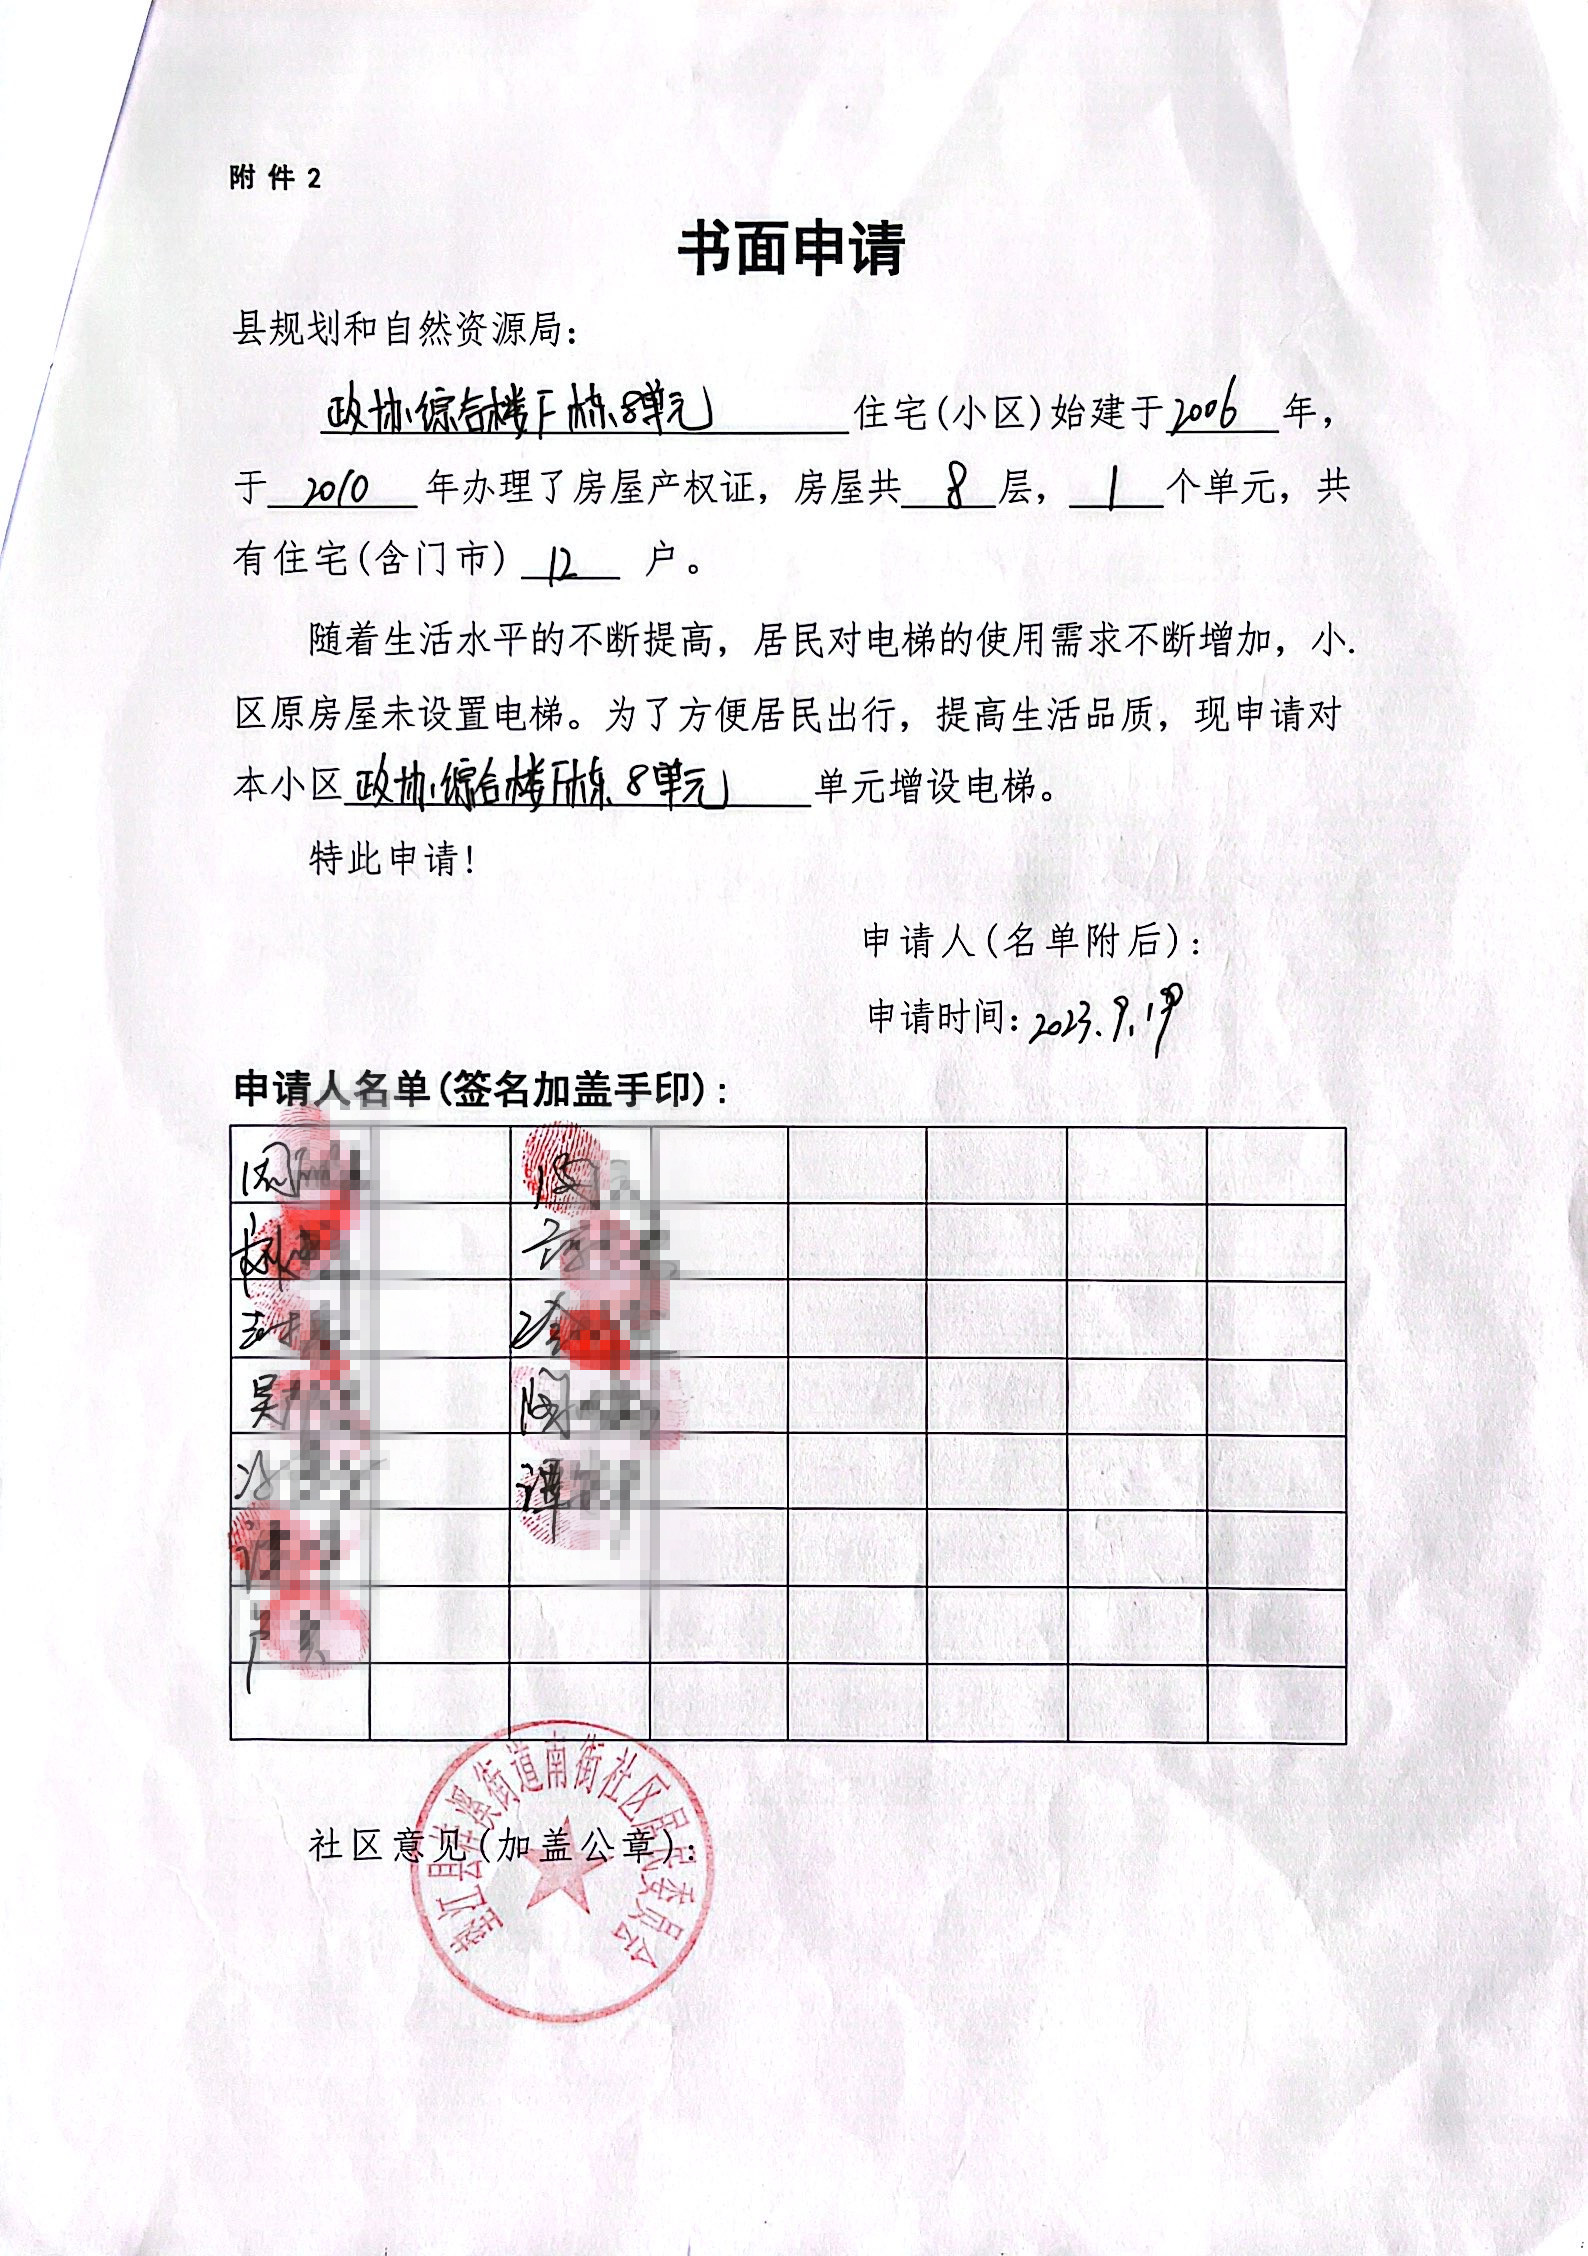 附件2
书面申请
县规划和自然资源局：
政协综合楼F栋8单元 住宅(小区)始建于2006年，
于 2010 年办理了房屋产权证，房屋共 8 层， 1 个单元，共
有住宅(含门市) 12 户。
随着生活水平的不断提高，居民对电梯的使用需求不断增加，小
区原房屋未设置电梯。为了方便居民出行，提高生活品质，现申请对
本小区政协综合楼F栋8单元 单元增设电梯。
特此申请！
申请人(名单附后)：
申请时间：2023.9.19
申请人名单(签名加盖手印)：
吴
谭
社区意见(加盖公章)：
垫江县桂溪街道南街社区居民委员会